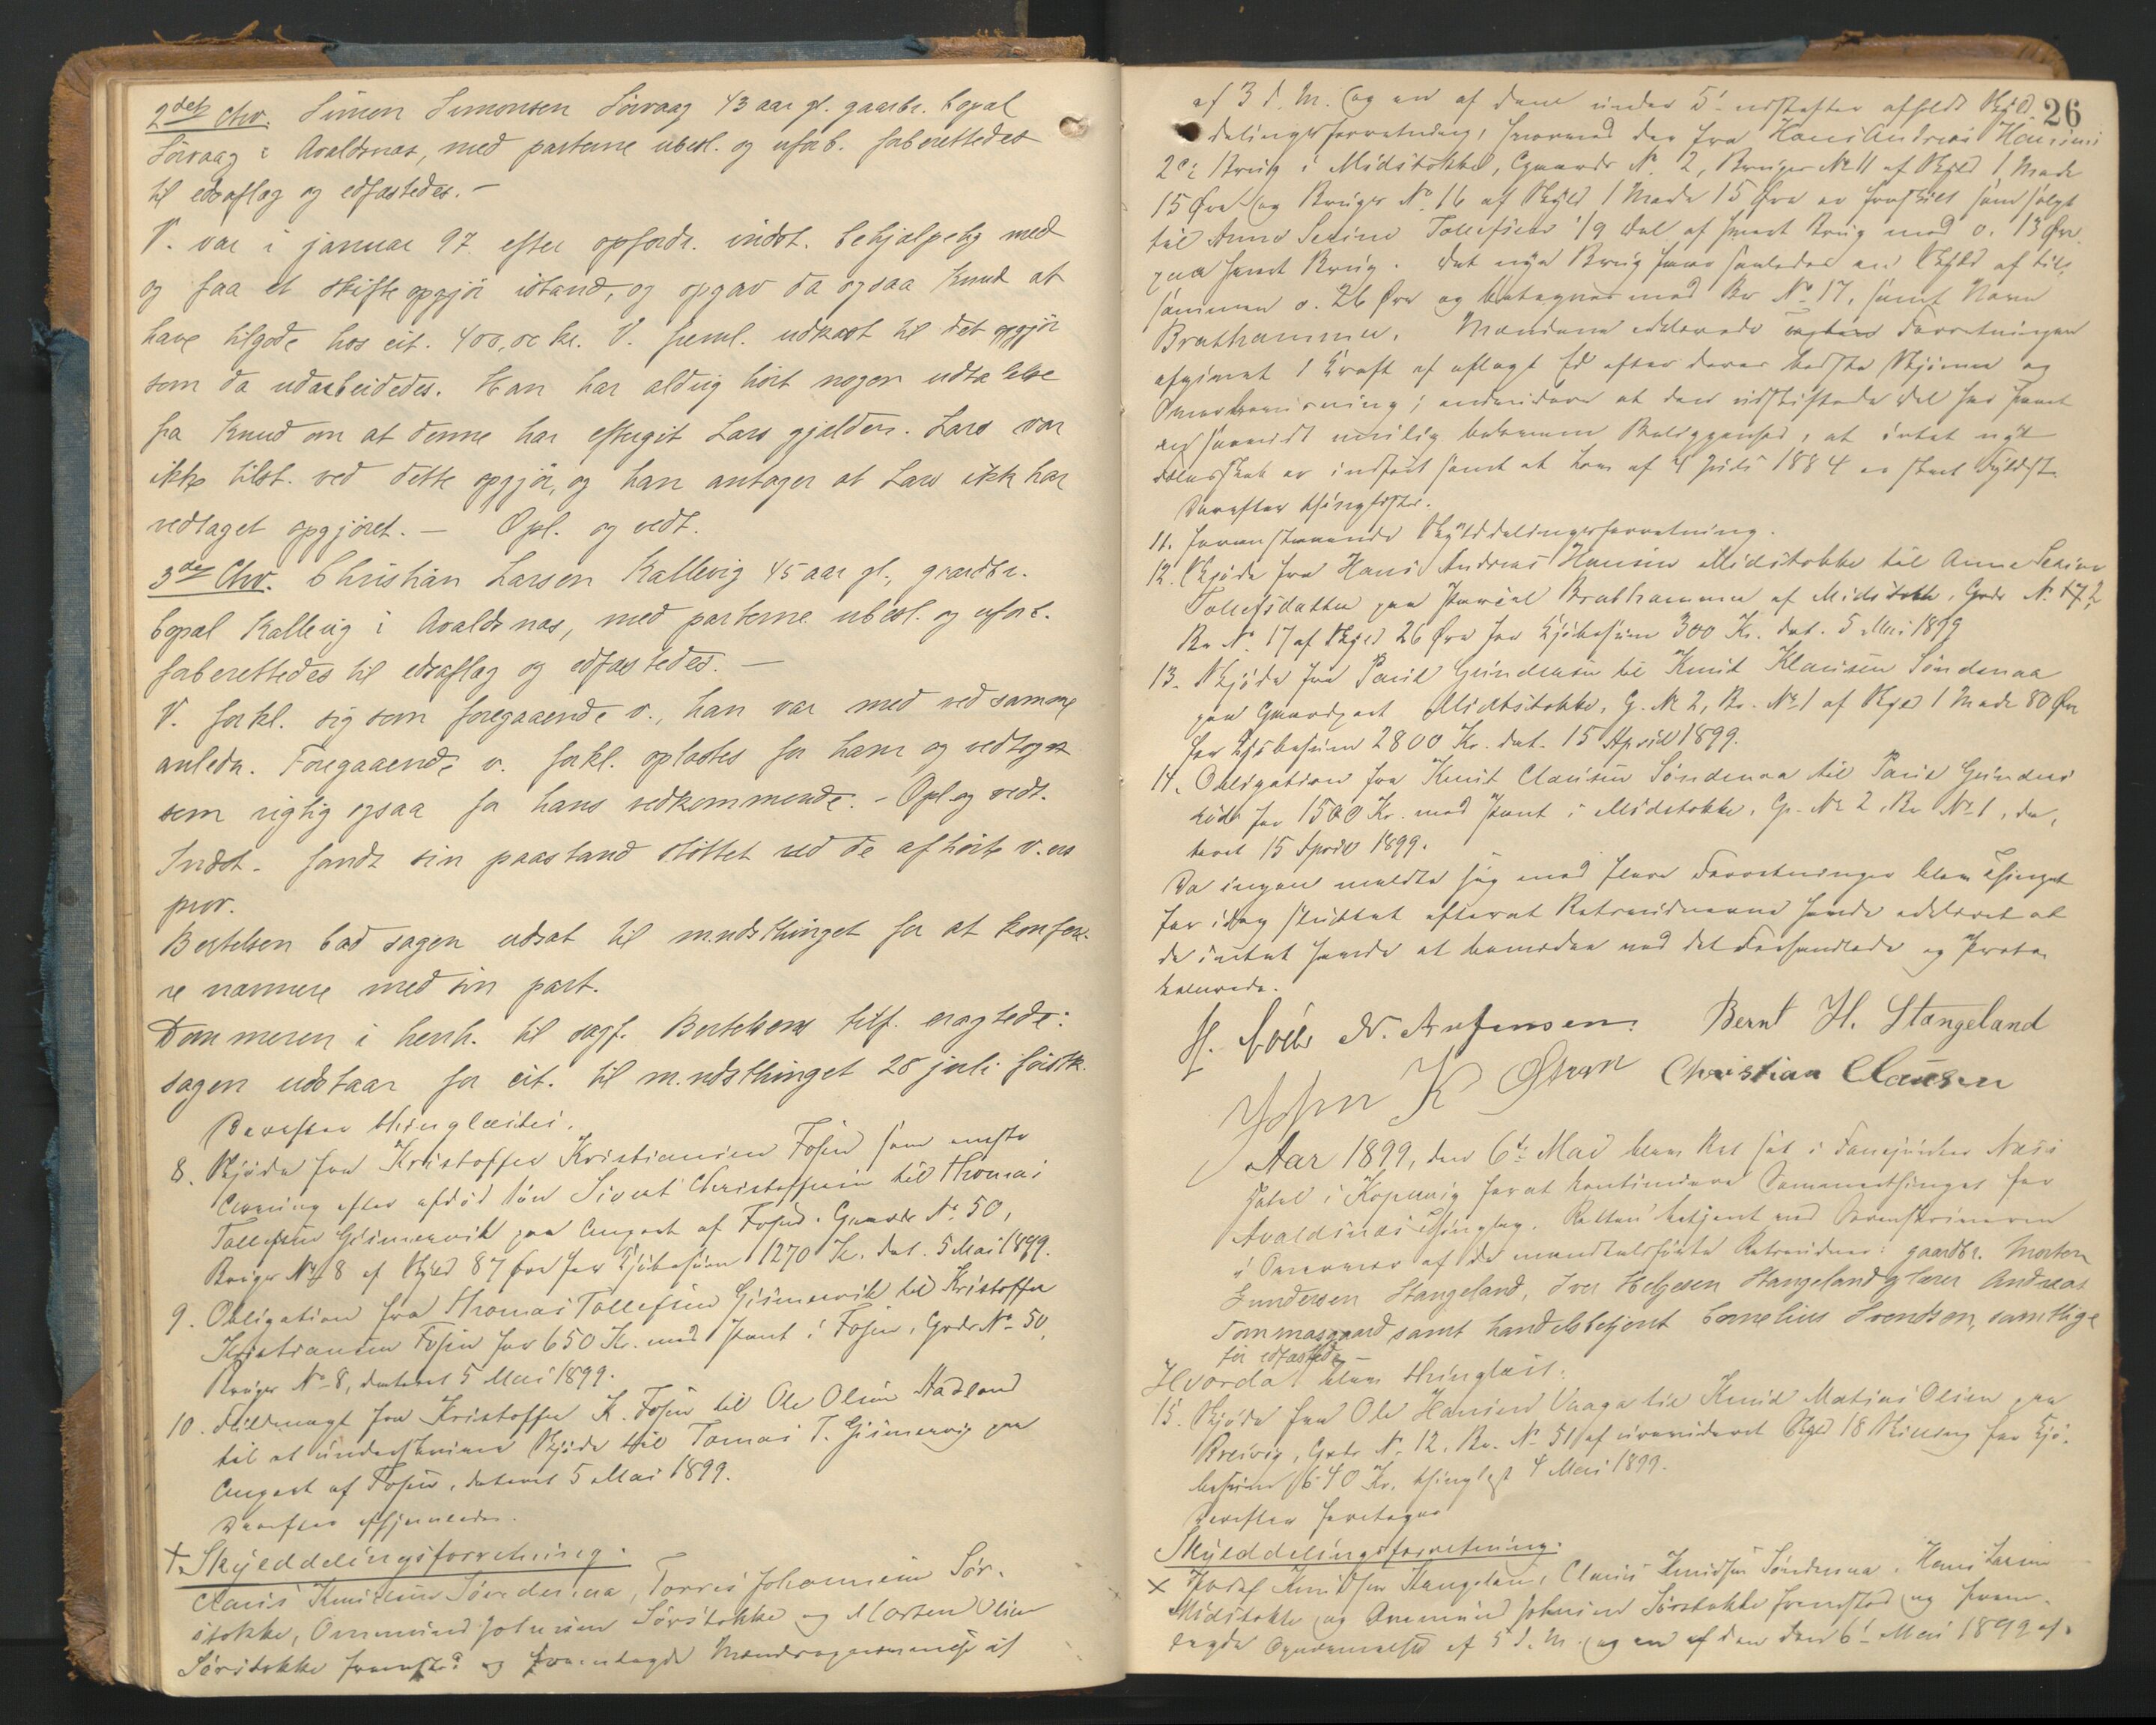 2det Chv. Simon Simonsen Sörvaag 43 aar gl. gaardbr. bopal
Sörvaag i Avaldsnæs, med parterne ubesl. og uforb. forberettedes
til edsaflæg og edfæstedes. –
V. var i januar 97 efter opfordr. indst. behjælpelig med
og faa et skifteopgjör istand, og opgav da ogsaa Knud at
have tilgode hos cit. 400,00 kr. V. freml. udkast til det opgjör
som da udarbeidedes. Han har aldrig hört nogen udtalelse
fra Knud om at denne har eftergit Lars gjælden. Lars var
ikke tilst. ved dette opgjör, og han antager at Lars ikke har
vedtaget opgjöret. – Opl. og vedt.
3die Chv. Christian Larsen Kallevig 45 aar gl., gaardbr.
bopal Kallevig i Avaldsnæs, med parterne ubesl. og uforb.
forberettedes til edsaflæg og edfæstedes. –
V. forkl. sig som foregaaende v., han var med ved samme
anledn. Foregaaende v. forkl. oplæstes for ham og vedtoges
som rigtig ogsaa for hans vedkommende. – Opl. og vedt.
Indst. fandt sin paastand stöttet ved de afhörte v.ers
prov.
Bertelsen bad sagen udsat til m.ndsthinget for at konfere-
re nærmere med sin part.
Dommeren i henh. til sagf. Bertelsens tilf. eragtede:
sagen udstaar for cit. til m.ndsthinget 28 juli förstk.
Derefter thinglæstes.
8. Skjöde fra Kristoffer Kristiansen Fosen som eneste
Arving efter afdöd sön Sivert Christoffersen til Thomas
Tollefsen Gismervik paa Anpart af Fosen. Gaards No 50,
Brugs No 8 af Skyld 87 öre for Kjöbesum 1270 Kr. dat. 5 Mai 1899.
9. Obligation fra Thomas Tollefsen Gismervik til Kristoffer
Kristiansen Fosen for 650 Kr. med Pant i Fosen, Grds No 50,
Brugs No 8, dateret 5 Mai 1899.
10. Fuldmagt fra Kristoffer K. Fosen til Ole Olsen Hadland
til at underskrive Skjöde til Tomas T. Gismervig paa
Anpart af Fosen, dateret 5 Mai 1899.
Derefter
+ Skylddelingsforretning.
Claus Knutsen Söndenaa, Torris Johannesen Sör-
stokke, Ommund Johnsen Sörstokke og Morten Olsen
Sörstokke fremstod og fremlagde Mændsopnævnelse af
26
af 3 d. M. og en af dem under 5te udstæfter afholdt Skyld-
delingsforretning, hvorved der fra Hans Andreas Hansens
2de Brug i Midstokke, Gaards No. 2, Brugs No 11 af Skyld 1 Mark
15 Öre og Brugs No. 16 af Skyld 1 Mark 15 Öre er fraskilt som solgt
til Anne Serine Tollefsen 1/9 Del af hvert Brug med o. 13 Öre
paa hvert Brug. Det nye Brug har saaledes en Skyld af til-
sammen o. 26 Öre og betegnes med Br No 17, samt Navn
Brathammer. Mændene erklærede Forretningen
afgivet i Kraft af aflagt Ed efter deres bedste Skjön og
Overbevisning; endvidere at den udskiftede Del har faaet
en saavidt mulig bekvem Beliggenhed, at intet nyt
er indfört samt at Lov af 4 Juli 1884 er skeet Fyldest.
Derefter thinglæstes.
11. Foranstaaende Skylddelingsforretning.
12. Skjöde fra Hans Andreas Hansen Midstokke til Anne Serine
Tollefsdatter paa Parcel Brathammer af Midstokke, Grds No. 2
Br No. 17 af Skyld 26 Öre for Kjöbesum 300 Kr. dat. 5 Mai 1899
13. Skjöde fra Paul Gundersen til Knut Klausen Söndenaa
paa Gaardpart Midtstokke, G. No 2, Br. No 1 af Skyld 1 Mark 80 Öre
for Kjöbesum 2800 Kr. dat. 15 April 1899.
14. Obligation fra Knut Clausen Söndenaa til Paul Gunders-
for 1500 Kr. med Pant i Midstokke, G. No 2, Br No 1, da-
teret 15 April 1899.
Da ingen meldte sig med flere Forretninger blev Thinget
for idag sluttet efterat Retsvidnerne havde erklæret at
de intet havde at bemærke ved det Forhandlede og Proto-
kollerede.
N. Arntsen. Bernt H. Stangeland
John K Christian Clausen
Aar 1899, den 6te Mai blev Ret sat i
Hotel i Kopervig for at kontinuere Sommerthinget for
Avaldsnæs Thinglag. Retten betjent ved Sorenskriveren
i Overvær af de mandtalsförte Retsvidner: gaardbr. Morten
Gundersen Stangeland, Iver Helgesen Stangeland, lærer Andreas
Tommasgaard samt handelsbetjent Cornelius Svendsen, samtlige
för edfæstede –
Hvorda blev thinglæst:
15. Skjöde fra Ole Hansen Vaaga til Knud Matias Olsen paa
Breivig, Grds No. 12, Br. No. 51 af urevideret Skyld 18 Skilling for Kjö-
besum 640 Kr. thinglæst 4 Mai 1899.
Derefter foretoges
Skylddelingsforretning.
x Knudsen Stangeland, Claus Knudsen Söndenaa, Hans Larsen
Midstokke og Ommund Johnsen Sörstokke fremstod og frem-
lagde Opnævnelse af 5 d. M. og en af dem den 6te Mai 1899 af-